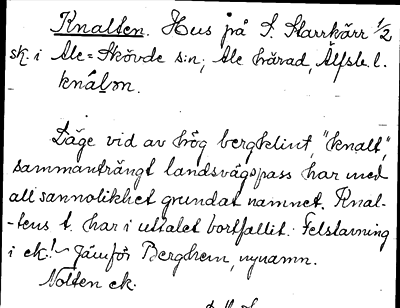 Knalten. Hus på S. Starrkärr 1/2
sk. i Ale-Skövde s:n, Ale härad, Älfsb. l.
knål̲ən.
Läge vid av hög bergklint, "knalt",
sammanträngt landsvägspass har med
all sannolikhet grundat namnet. Knal-
-tens t. har i uttalet bortfallit. Felstavning
i ek.! - Jämför Berghem, nynamn.
Nolten ek.